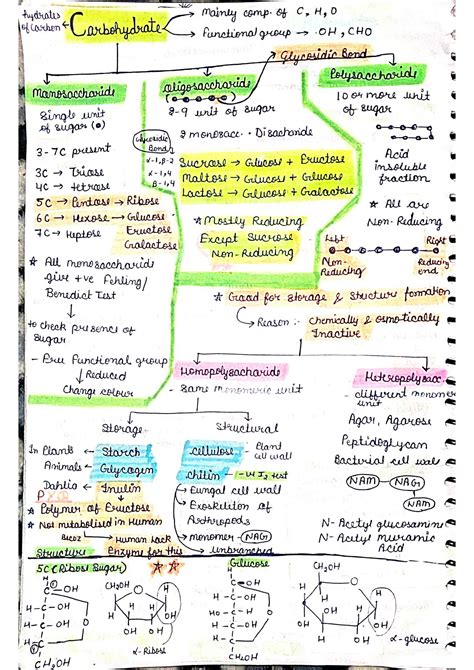 hydrates of Carbon ← Carbohydrate → Mainly comp. of C, H, O
→ Functional group → -OH, CHO
→ Glycosidic Bond
Monosaccharide
Single unit
of sugar
3-7C present
3C → Triose
4C → tetrose
5C → Pentose → Ribose
6C → Hexose → Glucose
Fructose
Galactose
7C → Heptose
* All monosaccharide
give +ve Fehling/
Benedict Test
to check presence of
Sugar
- Free Functional group
Reduced
Change colour
Oligosaccharide
2-9 unit of sugar
2 monosacc. · Disaccharide
Glycosidic
Bond
α-1,β-2
α-1,4
β-1,4
Sucrose → Glucose + Fructose
Maltose → Glucose + Glucose
Lactose → Glucose + Galactose
* Mostly Reducing
Except Sucrose
Non-Reducing
Polysaccharide
10 or more unit
of sugar
Acid
insoluble
fraction
* All are
Non-Reducing
Left
Right
Non-Reducing
Reducing end
* Good for storage & Structure formation
Reason :- Chemically & osmotically
Inactive
Homopolysaccharide
- Same monomeric unit
Storage
Structural
In Plants ← Starch
Animals ← Glycogen
Dahlia ← Inulin
* Polymer of Fructose
* Not metabolised in Human
Human lack
Enzyme for this
cellulose
Plant
cell wall
chitin
→ Fungal cell wall
→ Exoskeleton of
Arthropods
→ monomer - NAG
→ unbranched
Heteropolysacc.
- different monomer
unit
Agar, Agarose
Peptidoglycan
Bacterial cell wall
NAM
NAG
NAM
N- Acetyl glucosamine
N- Acetyl muramic
Acid
Structure
5C (Ribose Sugar)
CH₂OH
α-Ribose
Glucose
CH₂OH
α-glucose